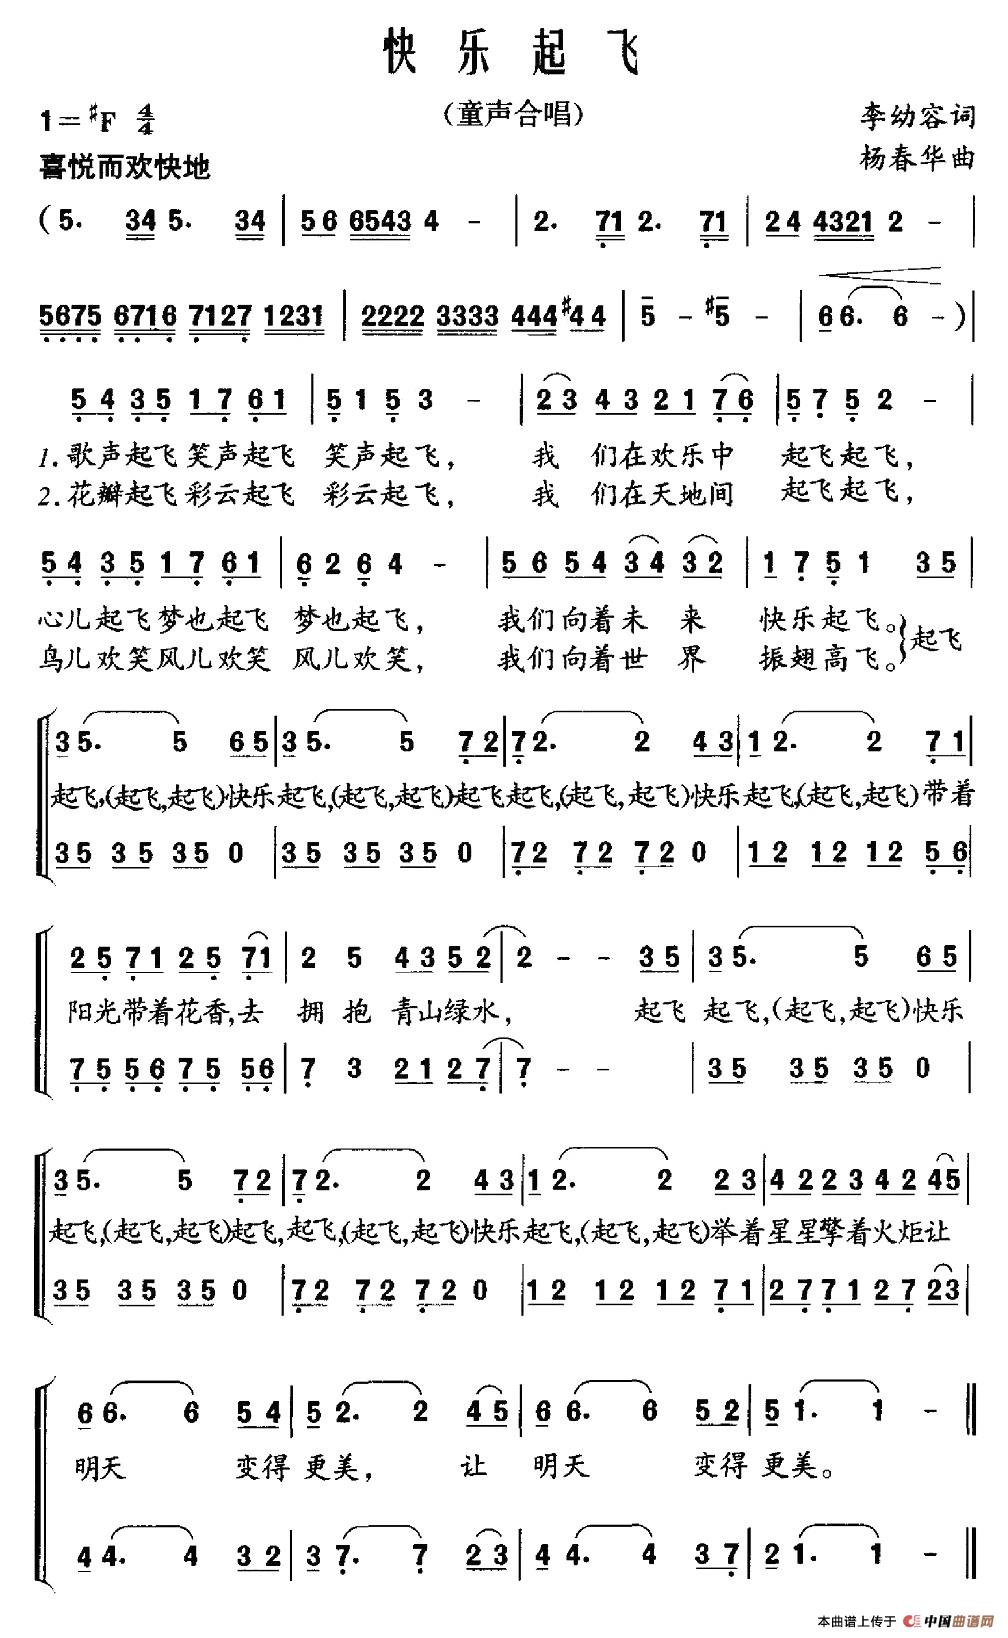 快乐起飞
1=♯F 4/4
(童声合唱)
李幼容词
喜悦而欢快地
杨春华曲
(5. 34 5. 34 | 56 6543 4 - | 2. 71 2. 71 | 24 4321 2 - |
5675 6716 7127 1231 | 2222 3333 444♯4 4 | 5 - ♯5 - | 6 6. 6 -)|
5 4 3 5 1 7 6 1 | 5 1 5 3 - | 2 3 4 3 2 1 7 6 | 5 7 5 2 - |
1.歌声起飞笑声起飞 笑声起飞， 我 们在欢乐中 起飞起飞，
2.花瓣起飞彩云起飞 彩云起飞， 我 们在天地间 起飞起飞，
5 4 3 5 1 7 6 1 | 6 2 6 4 - | 5 6 5 4 3 4 3 2 | 1 7 5 1 3 5 |
心儿起飞梦也起飞 梦也起飞， 我们向着未 来 快乐起飞。起飞
鸟儿欢笑风儿欢笑 风儿欢笑， 我们向着世 界 振翅高飞。
3 5. 5 6 5 | 3 5. 5 7 2 | 7 2. 2 4 3 | 1 2. 2 7 1 |
起飞，(起飞,起飞)快乐起飞,(起飞,起飞)起飞起飞,(起飞,起飞)快乐起飞,(起飞,起飞)带着
3 5 3 5 3 5 0 | 3 5 3 5 3 5 0 | 7 2 7 2 7 2 0 | 1 2 1 2 1 2 5 6 |
2 5 7 1 2 5 71 | 2 5 4 3 5 2 | 2 - - 3 5 | 3 5. 5 6 5 |
阳光带着花香,去 拥 抱 青山绿水， 起飞 起飞,(起飞,起飞)快乐
7 5 5 6 7 5 56 | 7 3 2 1 2 7 | 7 - - | 3 5 3 5 3 5 0 |
3 5. 5 7 2 | 7 2. 2 4 3 | 1 2. 2 2 3 | 4 2 2 3 4 2 45 |
起飞,(起飞,起飞)起飞,起飞,(起飞,起飞)快乐起飞,(起飞,起飞)举着星星擎着火炬让
3 5 3 5 3 5 0 | 7 2 7 2 7 2 0 | 1 2 1 2 1 2 7 1 | 2 7 7 1 2 7 23 |
6 6. 6 5 4 | 5 2. 2 4 5 | 6 6. 6 5 2 | 5 1. 1 - ‖
明天 变得 更美， 让 明天 变得 更美。
4 4. 4 3 2 | 3 7. 7 2 3 | 4 4. 4 3 7 | 2 1. 1 - ‖
本曲谱上传于 中国曲谱网